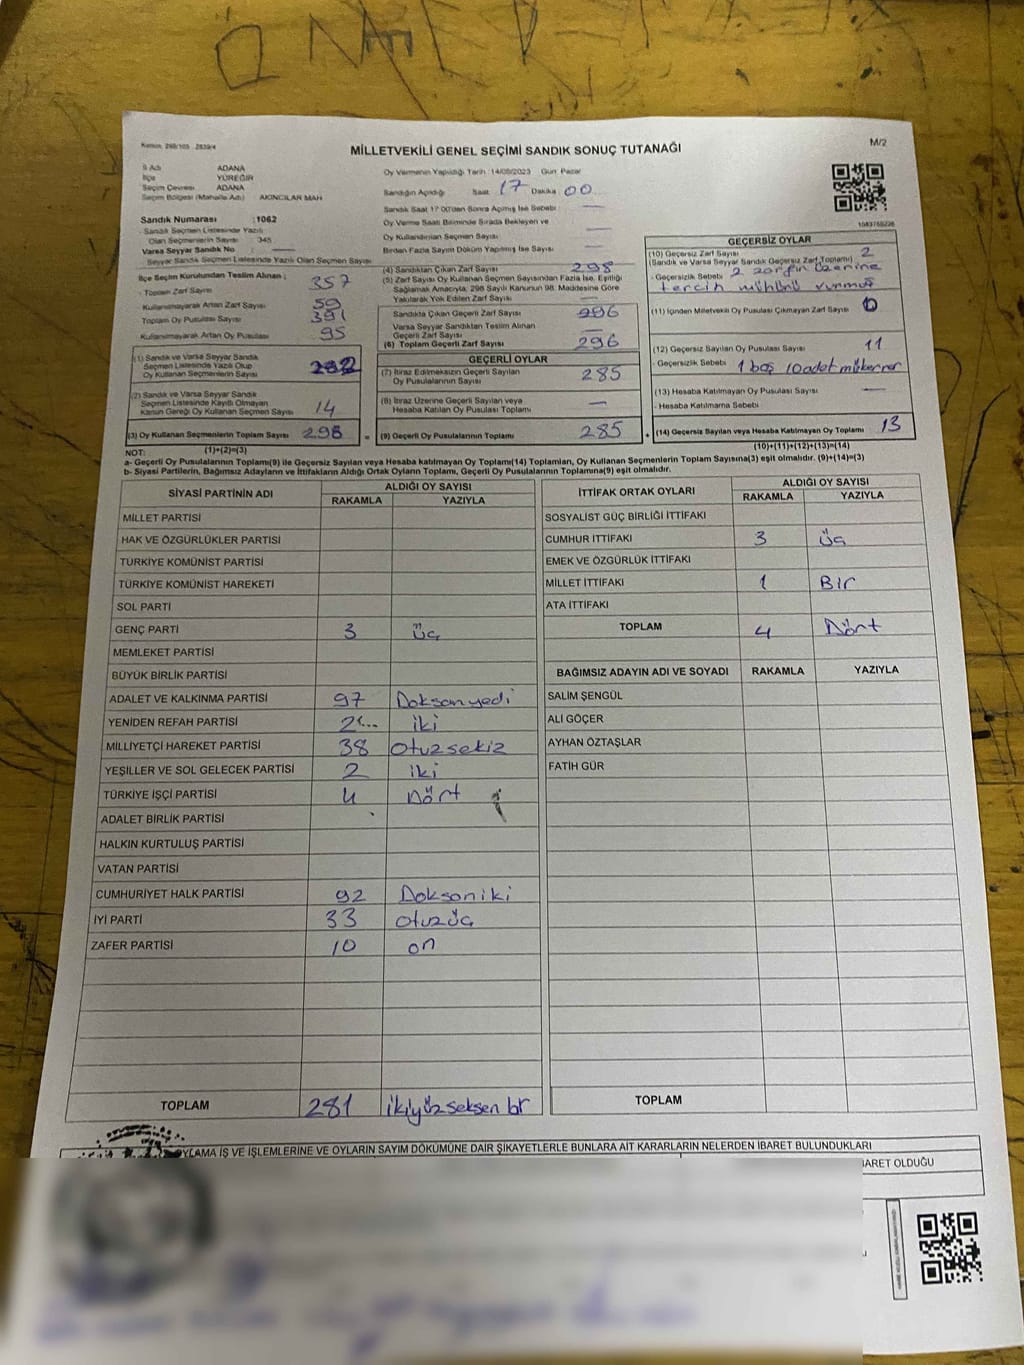 Kanun: 298/105 2839/4
MİLLETVEKİLİ GENEL SEÇİMİ SANDIK SONUÇ TUTANAĞI
M/2
İl Adı ADANA
İlçe YÜREĞİR
Seçim Çevresi ADANA
Seçim Bölgesi (Mahalle Adı) AKINCILAR MAH
Sandık Numarası :1062
- Sandık Seçmen Listesinde Yazılı
Olan Seçmenlerin Sayısı 345
Varsa Seyyar Sandık No
Seyyar Sandık Seçmen Listesinde Yazılı Olan Seçmen Sayısı
İlçe Seçim Kurulundan Teslim Alınan :
- Toplam Zarf Sayısı 357
Kullanılmayarak Artan Zarf Sayısı 59
Toplam Oy Pusulası Sayısı 391
Kullanılmayarak Artan Oy Pusulası 95
(1) Sandık ve Varsa Seyyar Sandık
Seçmen Listesinde Yazılı Olup
Oy Kullanan Seçmenlerin Sayısı
(2) Sandık ve Varsa Seyyar Sandık
Seçmen Listesinde Kayıtlı Olmayan
Kanun Gereği Oy Kullanan Seçmen Sayısı 14
(3) Oy Kullanan Seçmenlerin Toplam Sayısı 298 =
(1)+(2)=(3)
Oy Vermenin Yapıldığı Tarih :14/05/2023 Gün: Pazar
Sandığın Açıldığı Saat 17 Dakika 00
Sandık Saat 17:00'den Sonra Açılmış İse Sebebi —
Oy Verme Saati Bitiminde Sırada Bekleyen ve
Oy Kullandırılan Seçmen Sayısı —
Birden Fazla Sayım Döküm Yapılmış İse Sayısı —
(4) Sandıktan Çıkan Zarf Sayısı 298
(5) Zarf Sayısı Oy Kullanan Seçmen Sayısından Fazla İse, Eşitliği
Sağlamak Amacıyla, 298 Sayılı Kanunun 98. Maddesine Göre
Yakılarak Yok Edilen Zarf Sayısı —
Sandıkta Çıkan Geçerli Zarf Sayısı 296
Varsa Seyyar Sandıktan Teslim Alınan
Geçerli Zarf Sayısı —
(6) Toplam Geçerli Zarf Sayısı 296
GEÇERLİ OYLAR
(7) İtiraz Edilmeksizin Geçerli Sayılan
Oy Pusulalarının Sayısı 285
(8) İtiraz Üzerine Geçerli Sayılan veya
Hesaba Katılan Oy Pusulası Toplamı —
(9) Geçerli Oy Pusulalarının Toplamı 285 +
GEÇERSİZ OYLAR
(10) Geçersiz Zarf Sayısı 2
(Sandık ve Varsa Seyyar Sandık Geçersiz Zarf Toplamı)
- Geçersizlik Sebebi 2 zarfın üzerine
tercih mühürü vurmuş
(11) İçinden Milletvekili Oy Pusulası Çıkmayan Zarf Sayısı 0
(12) Geçersiz Sayılan Oy Pusulası Sayısı 11
- Geçersizlik Sebebi 1 boş 10 adet mükerrer
(13) Hesaba Katılmayan Oy Pusulası Sayısı —
- Hesaba Katılmama Sebebi
(14) Geçersiz Sayılan veya Hesaba Katılmayan Oy Toplamı 13
(10)+(11)+(12)+(13)=(14)
NOT:
a- Geçerli Oy Pusulalarının Toplamı(9) ile Geçersiz Sayılan veya Hesaba katılmayan Oy Toplamı(14) Toplamları, Oy Kullanan Seçmenlerin Toplam Sayısına(3) eşit olmalıdır. (9)+(14)=(3)
b- Siyasi Partilerin, Bağımsız Adayların ve İttifakların Aldığı Ortak Oyların Toplamı, Geçerli Oy Pusulalarının Toplamına(9) eşit olmalıdır.
SİYASİ PARTİNİN ADI ALDIĞI OY SAYISI
RAKAMLA YAZIYLA
MİLLET PARTİSİ
HAK VE ÖZGÜRLÜKLER PARTİSİ
TÜRKİYE KOMÜNİST PARTİSİ
TÜRKİYE KOMÜNİST HAREKETİ
SOL PARTİ
GENÇ PARTİ 3 üç
MEMLEKET PARTİSİ
BÜYÜK BİRLİK PARTİSİ
ADALET VE KALKINMA PARTİSİ 97 Doksanyedi
YENİDEN REFAH PARTİSİ 2 iki
MİLLİYETÇİ HAREKET PARTİSİ 38 Otuzsekiz
YEŞİLLER VE SOL GELECEK PARTİSİ 2 iki
TÜRKİYE İŞÇİ PARTİSİ 4 Dört
ADALET BİRLİK PARTİSİ
HALKIN KURTULUŞ PARTİSİ
VATAN PARTİSİ
CUMHURİYET HALK PARTİSİ 92 Doksaniki
İYİ PARTİ 33 otuzüç
ZAFER PARTİSİ 10 on
TOPLAM 281 ikiyüzseksen bir
İTTİFAK ORTAK OYLARI ALDIĞI OY SAYISI
RAKAMLA YAZIYLA
SOSYALİST GÜÇ BİRLİĞİ İTTİFAKI
CUMHUR İTTİFAKI 3 üç
EMEK VE ÖZGÜRLÜK İTTİFAKI
MİLLET İTTİFAKI 1 Bir
ATA İTTİFAKI
TOPLAM 4 Dört
BAĞIMSIZ ADAYIN ADI VE SOYADI RAKAMLA YAZIYLA
SALİM ŞENGÜL
ALİ GÖÇER
AYHAN ÖZTAŞLAR
FATİH GÜR
TOPLAM
OYLAMA İŞ VE İŞLEMLERİNE VE OYLARIN SAYIM DÖKÜMÜNE DAİR ŞİKAYETLERLE BUNLARA AİT KARARLARIN NELERDEN İBARET BULUNDUKLARI
İBARET OLDUĞU